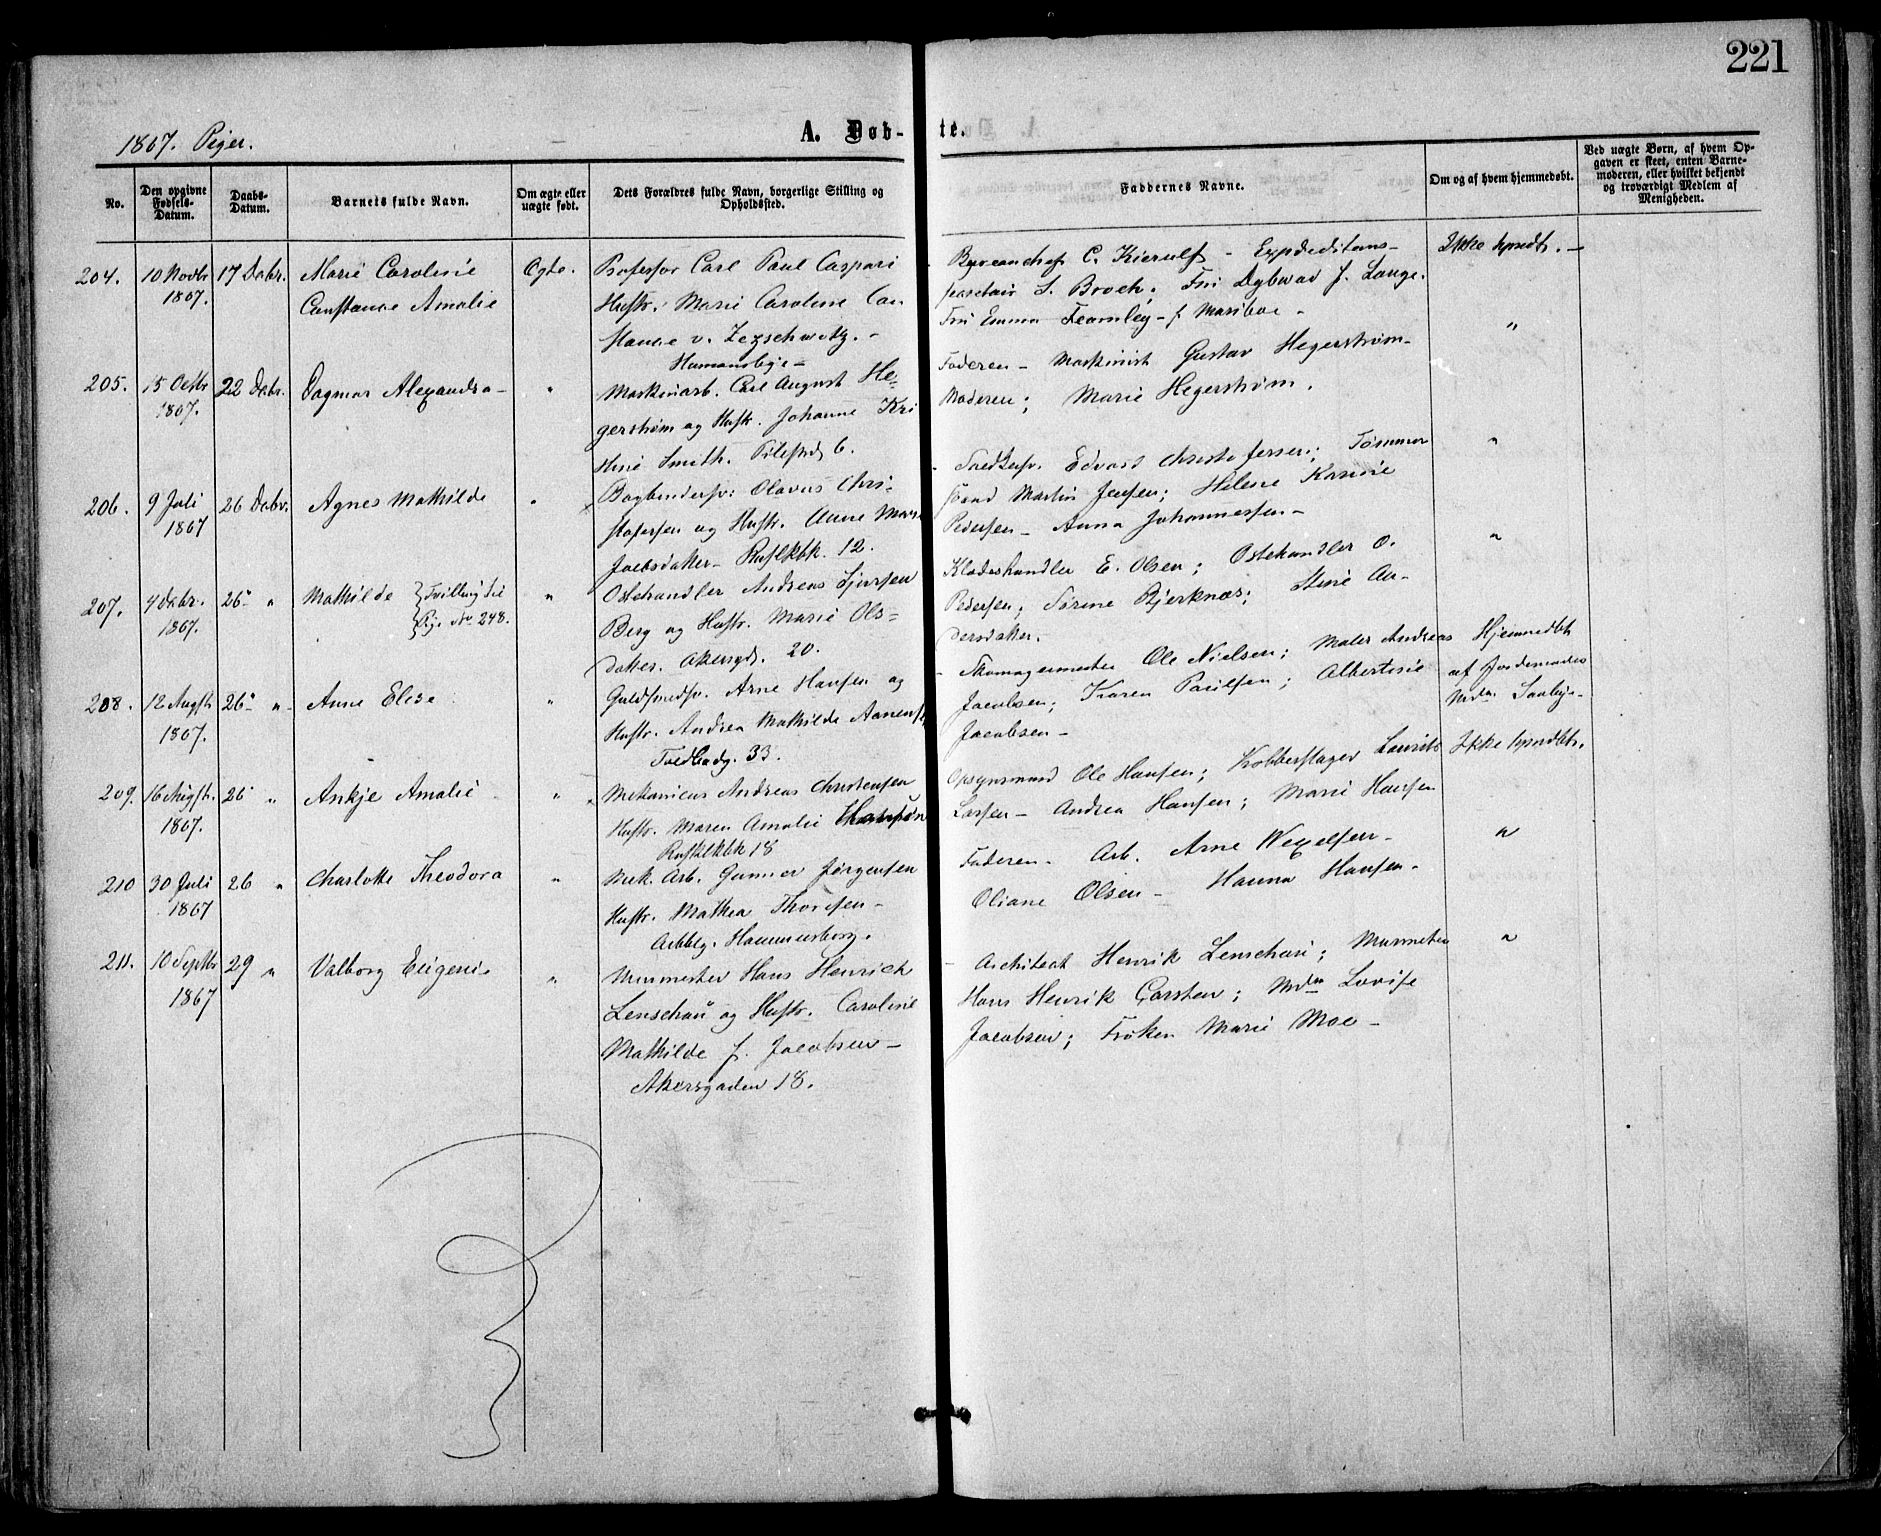 221
1867. Piger.
A. Døb- te.
No.
Den opgivne Fødsels-Datum.
Daabs-Datum.
Barnets fulde Navn.
Om ægte eller uægte født.
Dets Forældres fulde Navn, borgerlige Stilling og Opholdssted.
Faddernes Navne.
Om og af hvem hjemmedøbt.
Ved uægte Børn, af hvem Opgaven er skeet, enten Barnemoderen, eller hvilket bekjendt og troværdigt Medlem af Menigheden.
204. 10 Novbr 1867. 17 Dcbr. Marie Caroline
Constance Amalie
Ægte.
Professor Carl Paul Caspari
Hustr. Marie Caroline Con
stance v. Zezschwitz. -
Homansbye -
Bureauchef C. Kierulf - Expeditions-
secretair S. Broch; Fru Dybwad f. Lange.
Fru Emma Fearnley - f. Mariboe -
Ikke hjmdt. -
205. 15 Octbr 1867. 22 Dcbr. Dagmar Alexandra -
"
Maskinarb. Carl August He-
gerstrøm og Hustr. Johanne Kri
stine Smith. Pilestræd 6.
Faderen - Maskinist Gustav Hegerstrøm -
Moderen; Marie Hegerstrøm.
"
206. 9 Juli 1867 26 Dcbr. Agnes Mathilde
"
Bogbindersv: Olavus Chri-
stofersen og Hustr. Anne Marie
Jacbsdatter - Russlkbk. 12.
Edvard Christofersen; Tømmer
mand Martin Jensen; Helene Karine
Pedersen - Anna Johannessen -
"
207. 4 Dcbr. 1867. 26 " Mathilde {Tvilling til
Pige No 248.
"
Ostehandler Andreas Sjursen
Berg og Hustr. Marie Ols-
datter. Akersgd. 20.
Klædeshandler E. Olsen; Ostehandler O.
Pedersen; Sørine Bjerknæs; Stine An-
dersdatter.
"
208. 12 Augst 1867. 26 " Anne Elise
"
Guldsmedsv. Arne Hansen og
Hustr. Andrea Mathilde Aanensen
Toldbodg. 33.
Skomagermester Ole Nielsen; Maler Andreas
Jacobsen; Karen Paulsen; Albertine
Jacobsen -
Hjemmedbt
af Jordemoder
Mdm
209. 16 Augst. 1867. 26 " Ankje Amalie
"
Mekanicus Andreas Christensen
Hustr. Maren Amalie
Russlkbk 18
Opsynsmand Ole Hansen; Kobberslager Laurits
Larsen - Andrea Hansen; Marie Hansen
Ikke hjmdbt.
210 30 Juli 1867 26 " Charlotte Theodora
"
Mek. Arb. Gunner Jørgensen
Hustr. Mathea Thoresen -
Arbbg. Hammersborg.
Faderen - Arb. Arne Wexelsen -
Oliane Olsen - Hanna Hansen -
"
211. 10 Septbr 1867 29 " Valborg Eugenie
"
Murmester Hans Henrich
Lenschau og Hustr. Caroline
Mathilde f. Jacobsen -
Akersgaden 18.
Architect Henrik Lenschau; Murmester
Hans Henrik Carsten; Mdm Lovise
Jacobsen; Frøken Marie Moe -
"